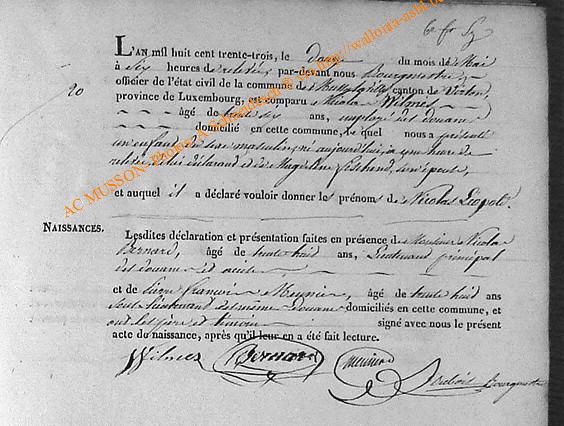 6e fr Sy
20
L'AN mil huit cent trente-trois, le douze du mois de Mai
à six heures de relevée, par-devant nous Bourgmestre
officier de l'état civil de la commune de canton de Virton,
province de Luxembourg, est comparu Nicolas Wilmes
âgé de trente six ans, employé des douanes
domicilié en cette commune, lequel nous a présenté
un enfant du sexe masculin, né aujourd'hui, à une heure de
relevée, de lui déclarant et de son épouse,
et auquel il a déclaré vouloir donner les prénoms de Nicolas Léopold.
NAISSANCES.
Lesdites déclaration et présentation faites en présence de Monsieur Nicolas
Bernard, âgé de trente huit ans, Lieutenant principal
des douanes
et de Pierre françois Meunier, âgé de trente huit ans
Sous lieutenant domiciliés en cette commune, et
ont les père et témoins signé avec nous le présent
acte de naissance, après qu'il leur en a été fait lecture.
Wilmes Bernard Meunier
Bourgmestre
AC MUSSON- Photos A Schmidt © http://www.wallonia-asbl.be